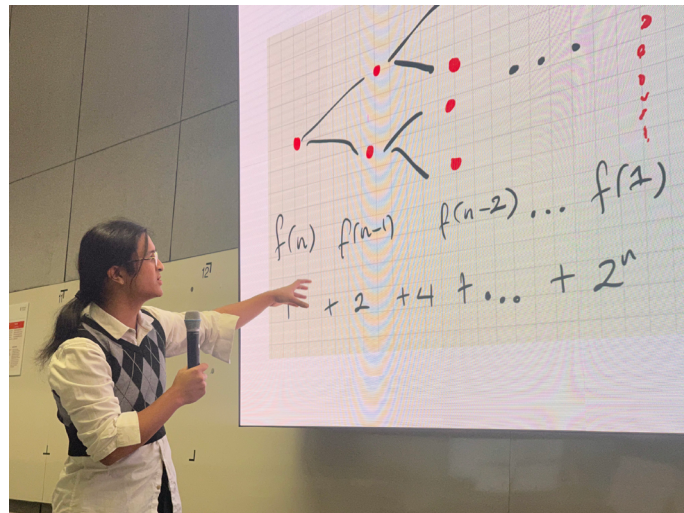 f(n) f(n-1) f(n-2) ... f(1)
1 + 2 + 4 + ... + 2ⁿ
12'